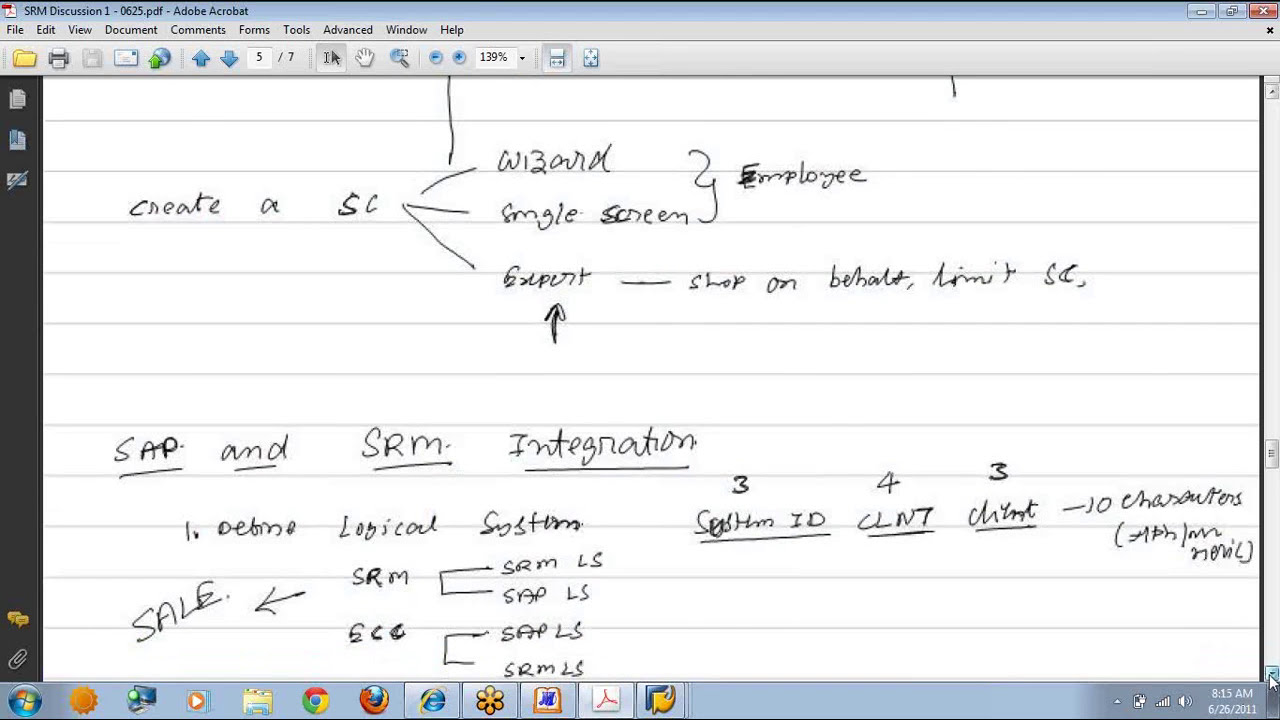 SRM Discussion 1 - 0625.pdf - Adobe Acrobat
File Edit View Document Comments Forms Tools Advanced Window Help
5 / 7 139%
wizard
Employee
create a SC
single screen
Expert — shop on behalf, limit SC,
SAP and SRM Integration
3 4 3
1. Define Logical System System ID CLNT client - 10 characters
SRM LS
SRM
SAP LS
SALE.
SAP LS
ECC
SRM LS
8:15 AM
6/26/2011